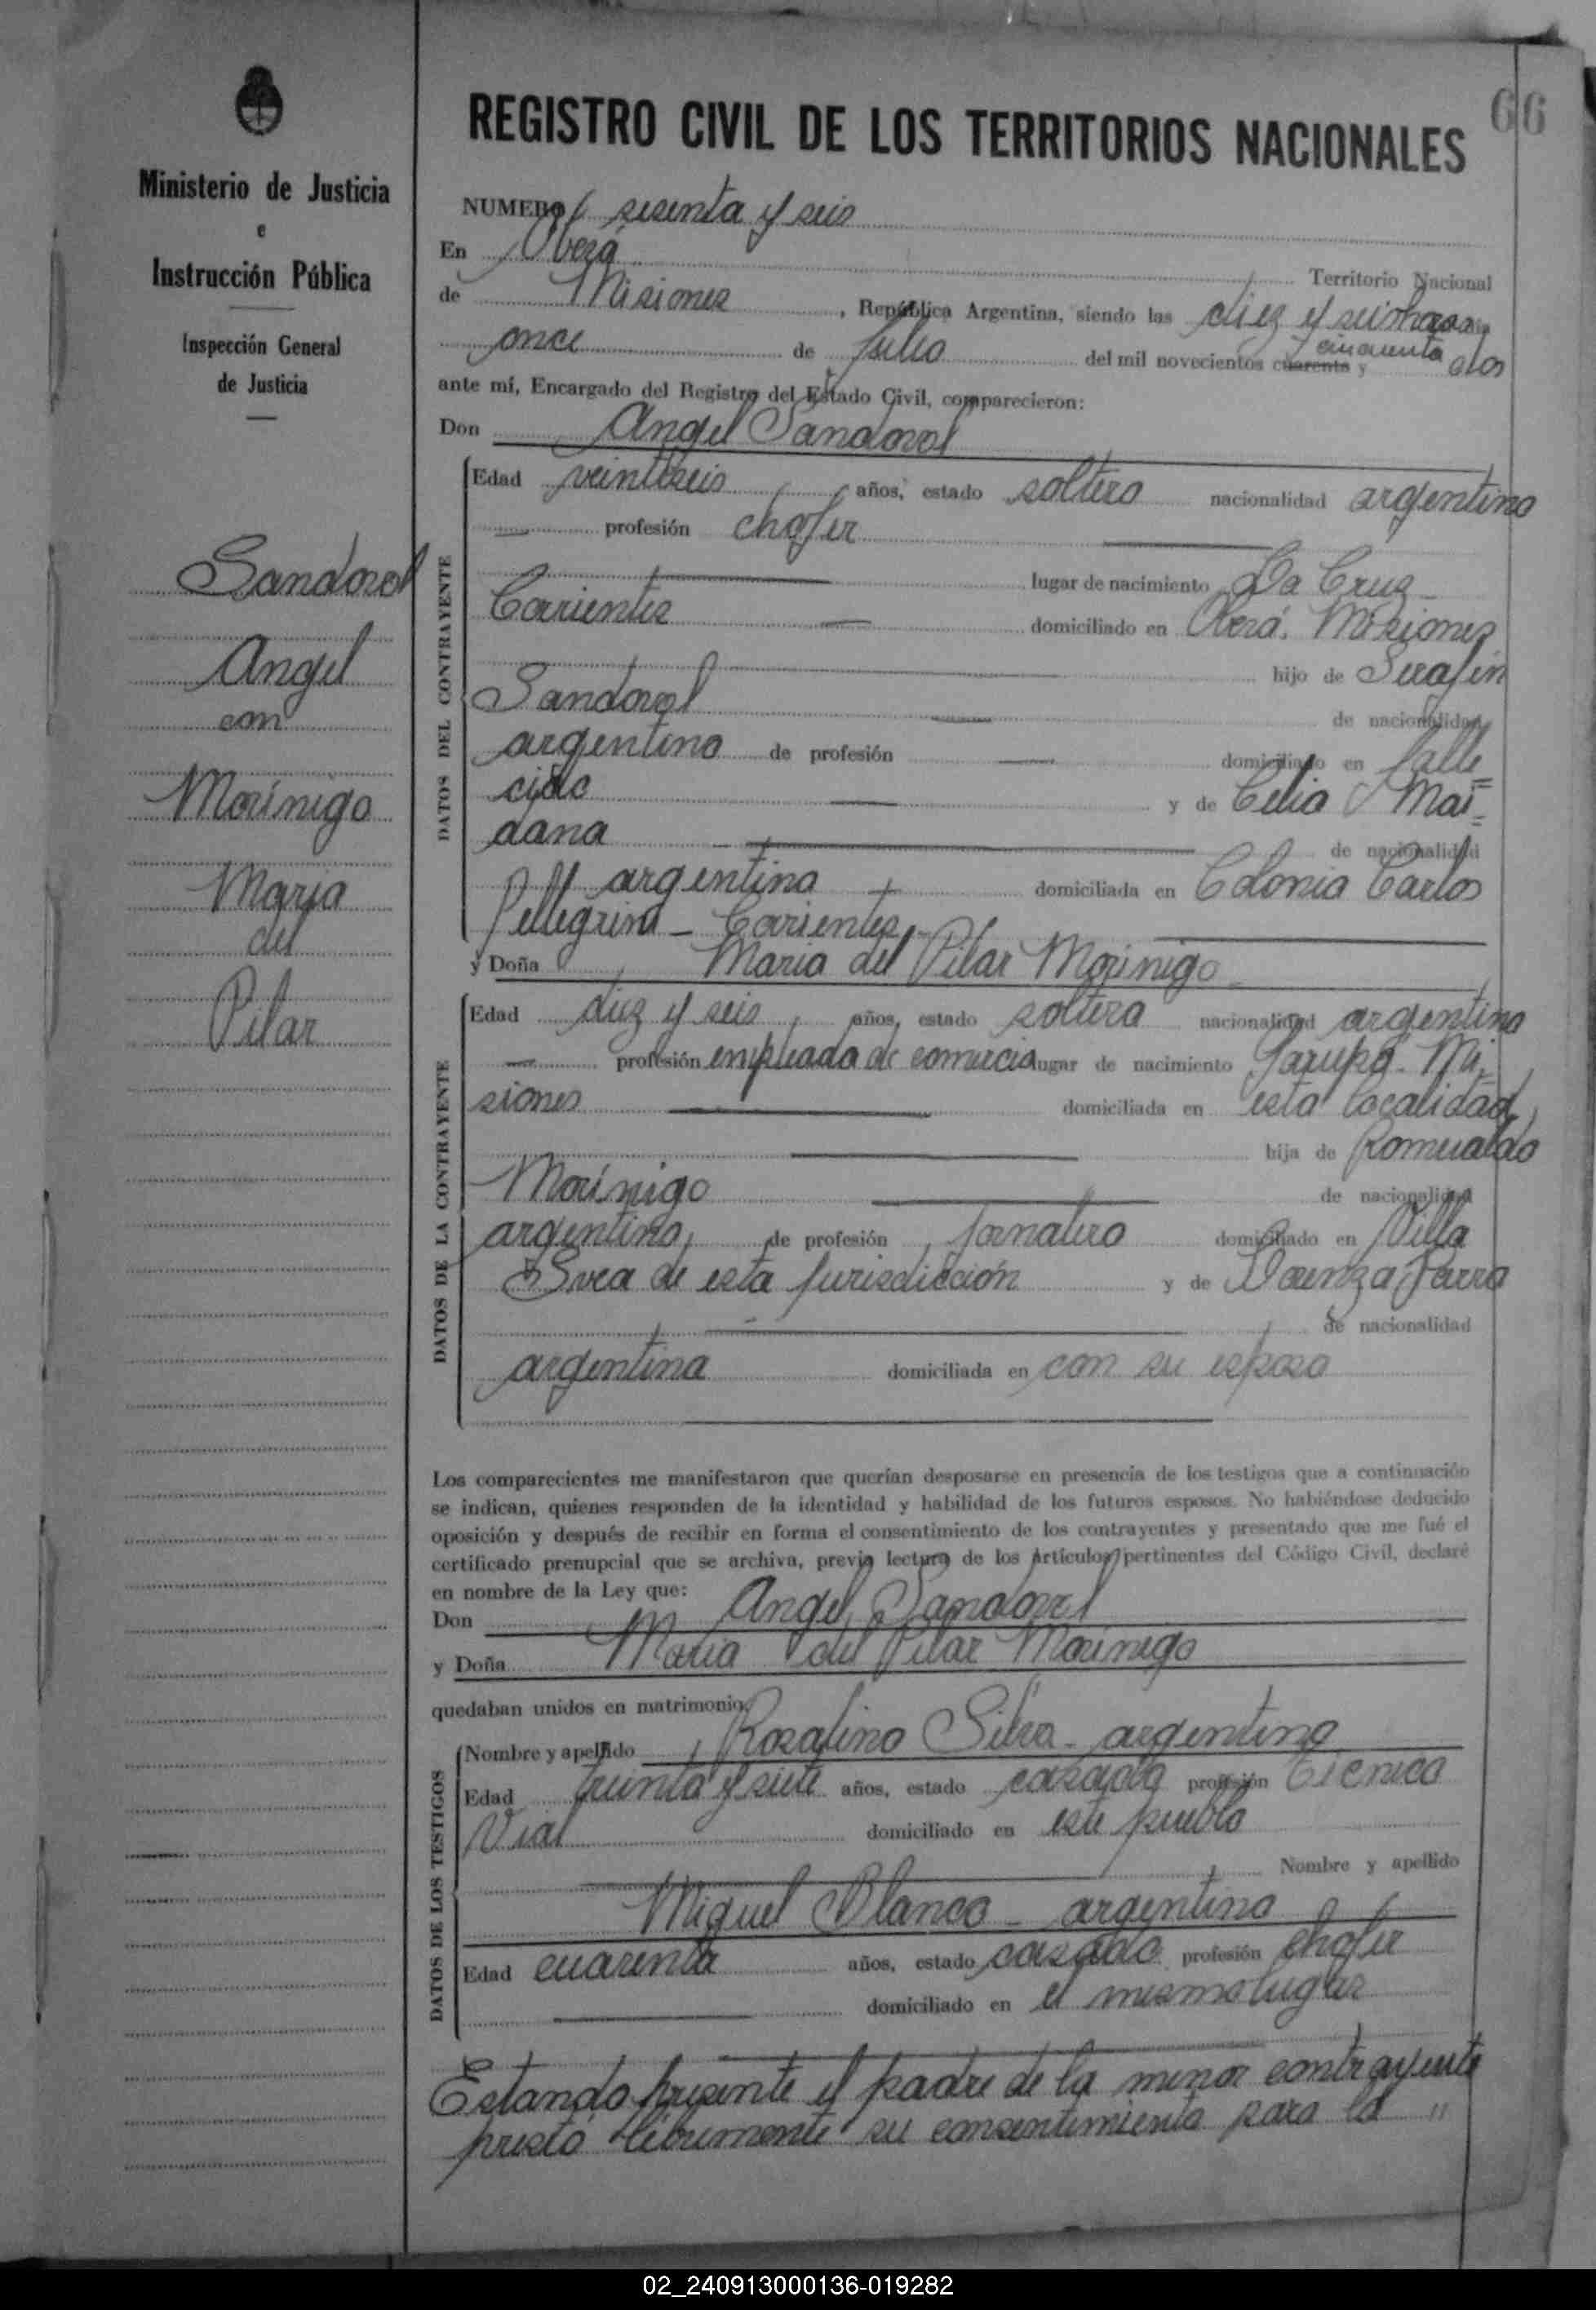 Ministerio de Justicia
e
Instrucción Pública
Inspección General
de Justicia
Sandoval
Angel
con
Morínigo
María
del
Pilar
66
REGISTRO CIVIL DE LOS TERRITORIOS NACIONALES
NUMERO sesenta y seis
En Oberá Territorio Nacional
de Misiones, República Argentina, siendo las diez y seis horas día
once de Julio del mil novecientos cuarenta y cincuenta dos
ante mí, Encargado del Registro del Estado Civil, comparecieron:
Don Angel Sandoval
DATOS DEL CONTRAYENTE
Edad veintiseis años, estado soltero nacionalidad argentino
profesión chofer
lugar de nacimiento La Cruz
Corrientes domiciliado en Oberá. Misiones
hijo de Serafín
Sandoval de nacionalidad
argentino de profesión domiciliado en falle=
cido y de Celia Mai=
dana de nacionalidad
argentina domiciliada en Colonia Carlos
Pellegrini - Corrientes
y Doña María del Pilar Morínigo
DATOS DE LA CONTRAYENTE
Edad diez y seis años, estado soltera nacionalidad argentina
profesión empleada de comercio lugar de nacimiento Garupá. Mi=
siones domiciliada en esta localidad,
hija de Romualdo
Morínigo de nacionalidad
argentino, de profesión jornalero domiciliado en Villa
Svea de esta jurisdicción y de
de nacionalidad
argentina domiciliada en con su esposo
Los comparecientes me manifestaron que querían desposarse en presencia de los testigos que a continuación
se indican, quienes responden de la identidad y habilidad de los futuros esposos. No habiéndose deducido
oposición y después de recibir en forma el consentimiento de los contrayentes y presentado que me fué el
certificado prenupcial que se archiva, previa lectura de los Artículos pertinentes del Código Civil, declaré
en nombre de la Ley que:
Don Angel Sandoval
y Doña María del Pilar Morínigo
quedaban unidos en matrimonio
DATOS DE LOS TESTIGOS
Nombre y apellido Rosalino Silva - argentino
Edad treinta y siete años, estado casado profesión técnico
Vial domiciliado en este pueblo
Nombre y apellido
Miguel Blanco - argentino
Edad cuarenta años, estado casado profesión chofer
domiciliado en el mismo lugar
Estando presente el padre de la menor contrayente
prestó libremente su consentimiento para la "
02_240913000136-019282